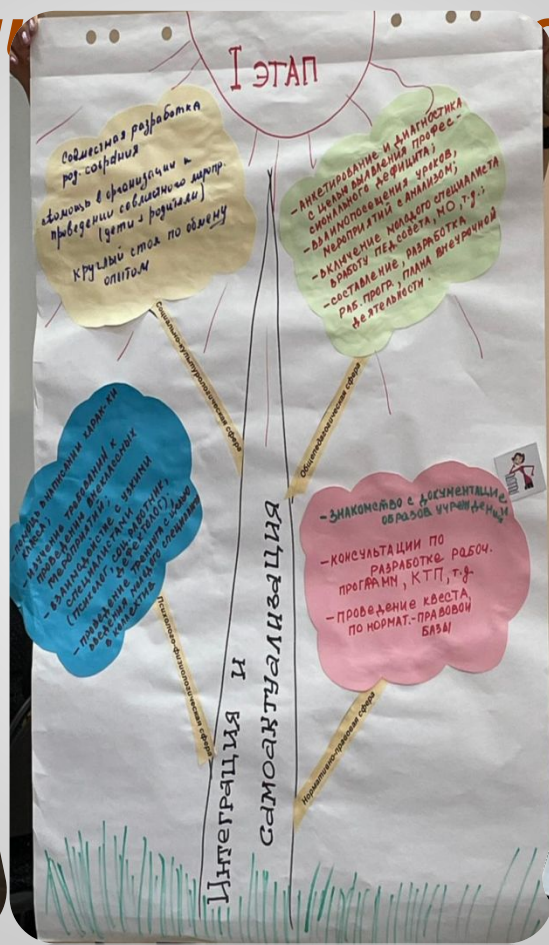 I ЭТАП
Совместная разработка
род-собрания
помощь в организации и
проведении совместного меропр.
(дети + родители)
круглый стол по обмену
опытом
- АНКЕТИРОВАНИЕ И ДИАГНОСТИКА
С ЦЕЛЬЮ ВЫЯВЛЕНИЯ ПРОФЕС-
СИОНАЛЬНОГО ДЕФИЦИТА;
- ВЗАИМОПОСЕЩЕНИЯ УРОКОВ,
МЕРОПРИЯТИЙ С АНАЛИЗОМ;
- ВКЛЮЧЕНИЕ МОЛОДОГО СПЕЦИАЛИСТА
В РАБОТУ ПЕД. СОВЕТА, МО, т.д.;
- СОСТАВЛЕНИЕ, РАЗРАБОТКА
РАБ. ПРОГР., ПЛАНА ВНЕУРОЧНОЙ
ДЕЯТЕЛЬНОСТИ.
сфера
Общепедагогическая сфера
- помощь в написании харак-ки
класса;
- изучение требований к
проведению внеклассных
мероприятий;
- взаимодействие с узкими
специалистами
(психолог, соц. работник,
дефектолог);
- проведение тренинга с целью
введения молодого специалиста
в коллектив
- ЗНАКОМСТВО С ДОКУМЕНТАЦИЕЙ
ОБРАЗОВ. УЧРЕЖДЕНИЯ
- КОНСУЛЬТАЦИИ ПО
РАЗРАБОТКЕ РАБОЧ.
ПРОГРАММ, КТП, т.д.
- ПРОВЕДЕНИЕ КВЕСТА
ПО НОРМАТ.-ПРАВОВОЙ
БАЗЫ
сфера
Нормативно-правовая сфера
Интеграция и
самоактуализация